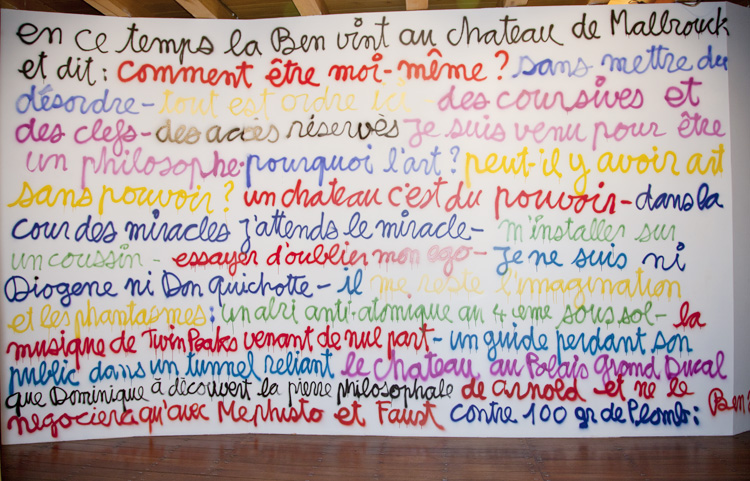 en ce temps la Ben vint au chateau de Malbrouck
et dit : comment être moi-même ? sans mettre du
désordre - tout est ordre ici - des coursives et
des clefs - des accès réservès je suis venu pour être
un philosophe. pourquoi l'art ? peut-il y avoir art
sans pouvoir ? un chateau c'est du pouvoir - dans la
cour des miracles j'attends le miracle - m'installer sur
un coussin - essayer d'oublier mon ego - je ne suis ni
Diogene ni Don quichotte - il me reste l'imagination
et les phantasmes : un abri anti-atomique au 4 eme sous sol - la
musique de Twin Peaks venant de nul part - un guide perdant son
public dans un tunnel reliant le chateau au Palais Grand Ducal
que Dominique à découvert la pierre philosophale de arnold et ne le
negociera qu'avec Mephisto et Faust contre 100 gr de Plomb : Ben